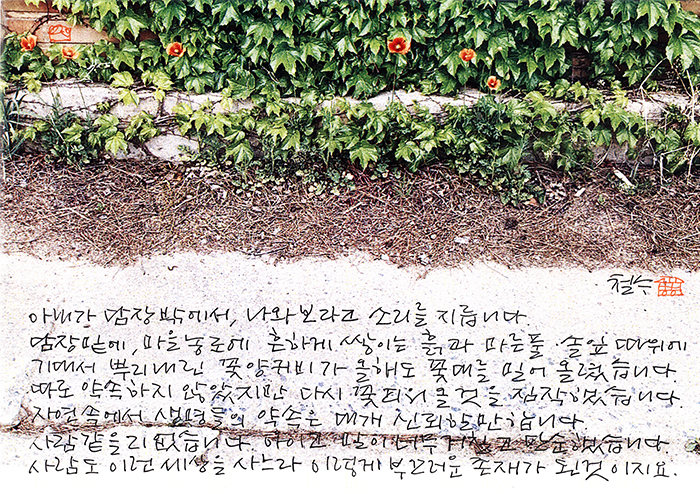 철수
아내가 담장 밖에서, 나와보라고 소리를 지릅니다.
담장 밑에, 마을농로에 흔하게 쌓이는 흙과 마른풀·솔잎 따위에
기대서 뿌리내린 꽃양귀비가 올해도 꽃대를 밀어 올렸습니다
따로 약속하지 않았지만 다시 꽃피워 올 것을 짐작했습니다.
자연속에서 생명들의 약속은 대개 신뢰할만합니다.
사람같을리 없습니다. 어이고 말이 너무 거칠고 단순했습니다.
사람도 이런 세상을 사느라 이렇게 부끄러운 존재가 된것이지요.